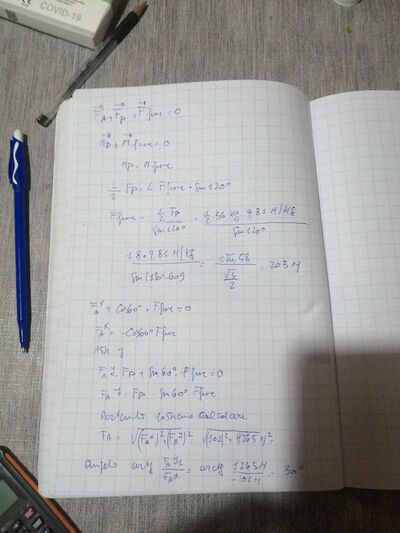 COVID-19
F_A + F_P + F_fune = 0
M_P + M_fune = 0
M_P = M_fune
L/2 F_P = L F_fune · sin 120°
F_fune = (L/2 F_P)/(sin 120°) = (1/2 36 kg · 9,81 N/kg)/(sin 120°)
(18 · 9,81 N/kg)/(sin(180°-60°)) = 176,58/(√3/2) = 203 N
F_A^x + cos60° · F_fune = 0
F_A^x = -cos60° F_fune
Ass y
F_A^y F_P + sin60° · F_fune = 0
F_A^y = F_P - sin60° F_fune
Pertanto possiamo calcolare
F_A = √((F_A^x)² + (F_A^y)²) = √((102)² + (176,5 N)²) =
Angolo arctg F_A^y/F_A^x = arctg 176,5 N/-102 N = 30°